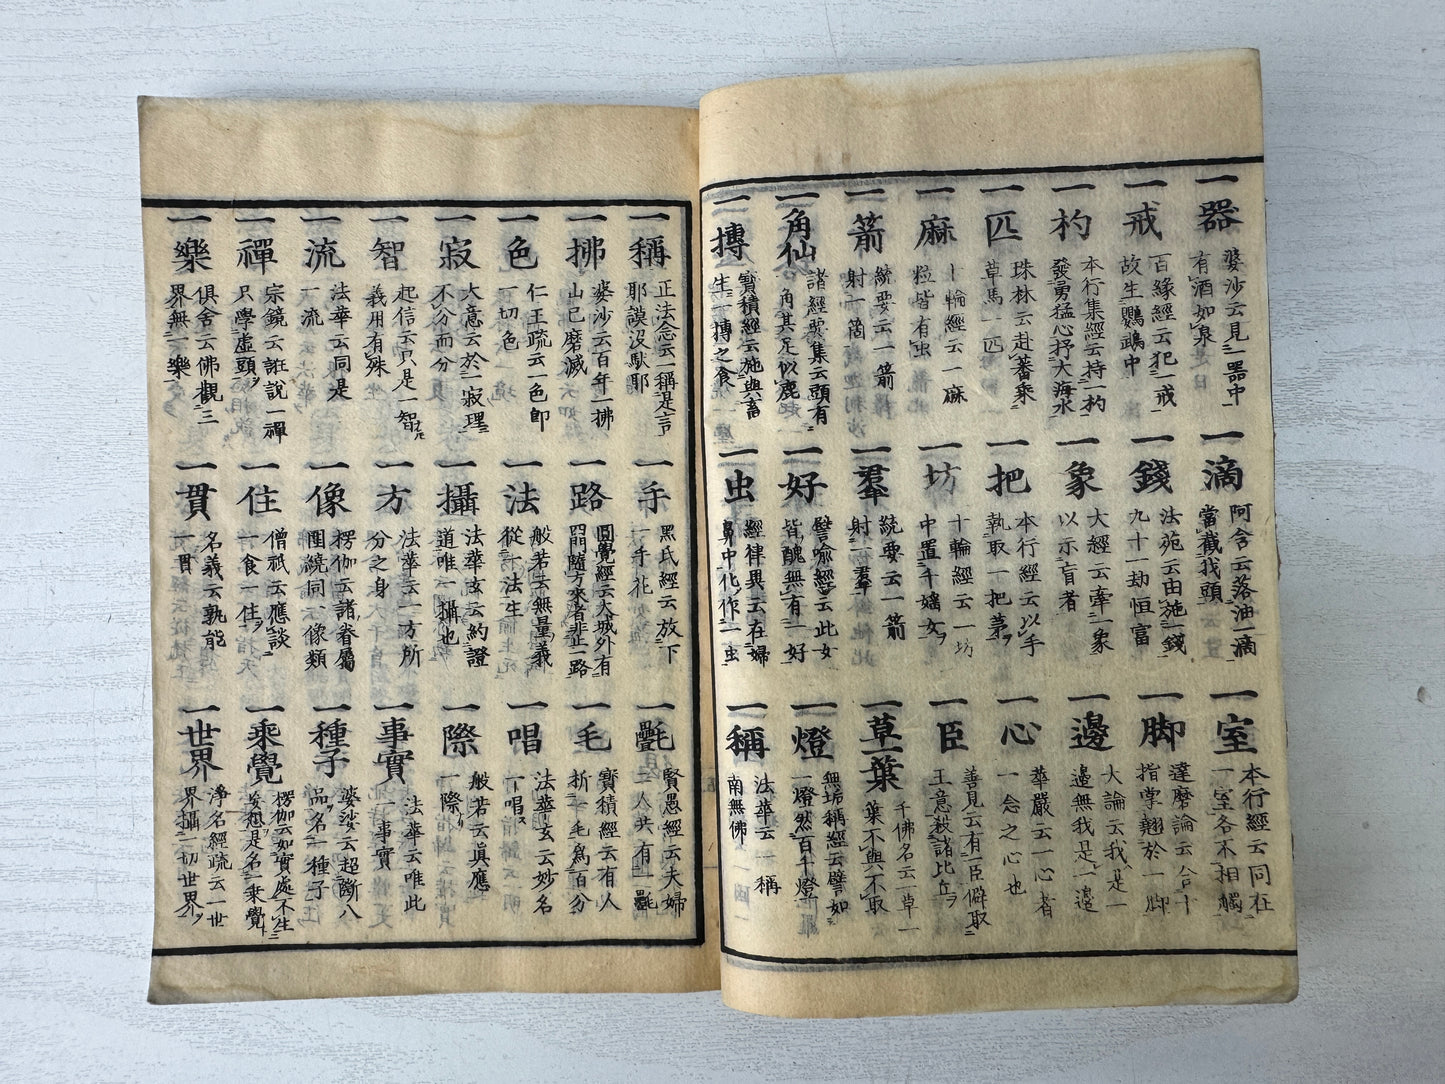 一器
婆沙云見一器中
有酒如泉
一滴
阿含云落油一滴
當截我頭
一室
本行經云同在
一室各不相觸
一戒
百緣經云犯一戒
故生鸚鵡中
一錢
法苑云由施一錢
九十一劫恒富
一脚
達磨論云合十
指掌翹於一脚
一杓
本行集經云持一杓
發勇猛心抒大海水
一象
大經云牽一象
以示盲者
一邊
大論云我是一
邊無我是一邊
一匹
珠林云赴蕃乘
草馬一匹
一把
本行經云以手
執取一把茅
一心
華嚴云一心者
一念之心也
一麻
十輪經云一麻
粒皆有虫
一坊
十輪經云一坊
中置千婬女
一臣
善見云有一臣僻取
王意殺諸比丘
一箭
統要云一箭
射一箇
一羣
統要云一箭
射一羣
一草一葉
千佛名云一草一
葉不與不取
一角仙
諸經要集云頭有
一角其足似鹿
一好
譬喩經云此女
皆醜無有一好
一燈
無垢稱經云譬如
一燈然百千燈
一摶
寶積經云施與畜
生一摶之食
一虫
經律異云在婦
鼻中化作一虫
一稱
法華云一稱
南無佛
一稱
正法念云一稱是言
耶謨沒馱耶
一手
黑氏經云放下
一手花
一氎
賢愚經云夫婦
二人共有一氎
一拂
婆沙云百年一拂
山已磨滅
一路
圓覺經云大城外有
四門隨方來者非止一路
一毛
寶積經云有人
折一毛爲百分
一色
仁王疏云一色卽
一切色
一法
般若云無量義
從一法生
一唱
法華玄云妙名
一唱
一寂
大意云於一寂理
不分而分
一攝
法華玄云約證
道唯一攝也
一際
般若云眞應
一際
一智
起信云只是一智
義用有殊
一方
法華云一方所
分之身
一事實
法華云唯此
一事實
一流
法華云同是
一流
一像
楞伽云諸眷屬
圍繞同一像類
一種子
婆娑云超斷八
品名一種子
一禪
宗鏡云誑說一禪
只學虛頭
一住
僧祇云應談
一食一住
一乘覺
楞伽云如實處不生
妄想是名一乘覺
一樂
俱舍云佛觀三
界無一樂
一貫
名義云孰能
一貫
一世界
淨名經疏云一世
界攝一切世界